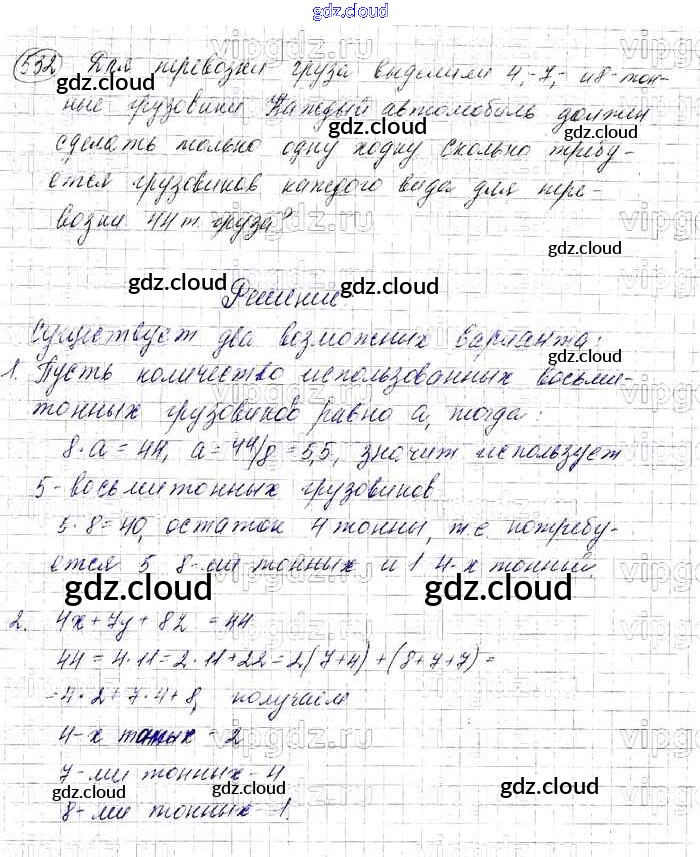 gdz.cloud
532 Для перевозки груза выделили 4,-7,- и 8-тон-
ные грузовики Каждый автомобиль должен
gdz.cloud gdz.cloud gdz.cloud
сделать только одну ходку Сколько требу-
ется грузовиков каждого вида для пере-
возки 44 т груза?
gdz.cloud gdz.cloud
Решение:
gdz.cloud gdz.cloud
Существует два возможных варианта:
1. Пусть количество использованных восьми-
тонных грузовиков равно а, тогда:
8·а = 44, а = 44/8 = 5,5, значит использует
5-восьмитонных грузовиков
5·8=40, остаток 4 тонны, т.е. потребу-
ется 5 8-ми тонных и 1 4-х тонный.
gdz.cloud gdz.cloud
2. 4x+7y+8z = 44
44 = 4·11 = 2·11+22 = 2(7+4)+(8+7+7) =
=4·2+7·4+8, получаем
4-х тонных - 2
7-ми тонных - 4
gdz.cloud gdz.cloud
8-ми тонных - 1.